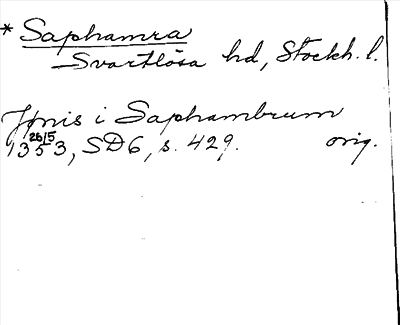 * Saphamra
Svartlösa hd, Stockh. l.
Jonis i Saphambrum
1353, 26/5 SD6, s. 429. orig.